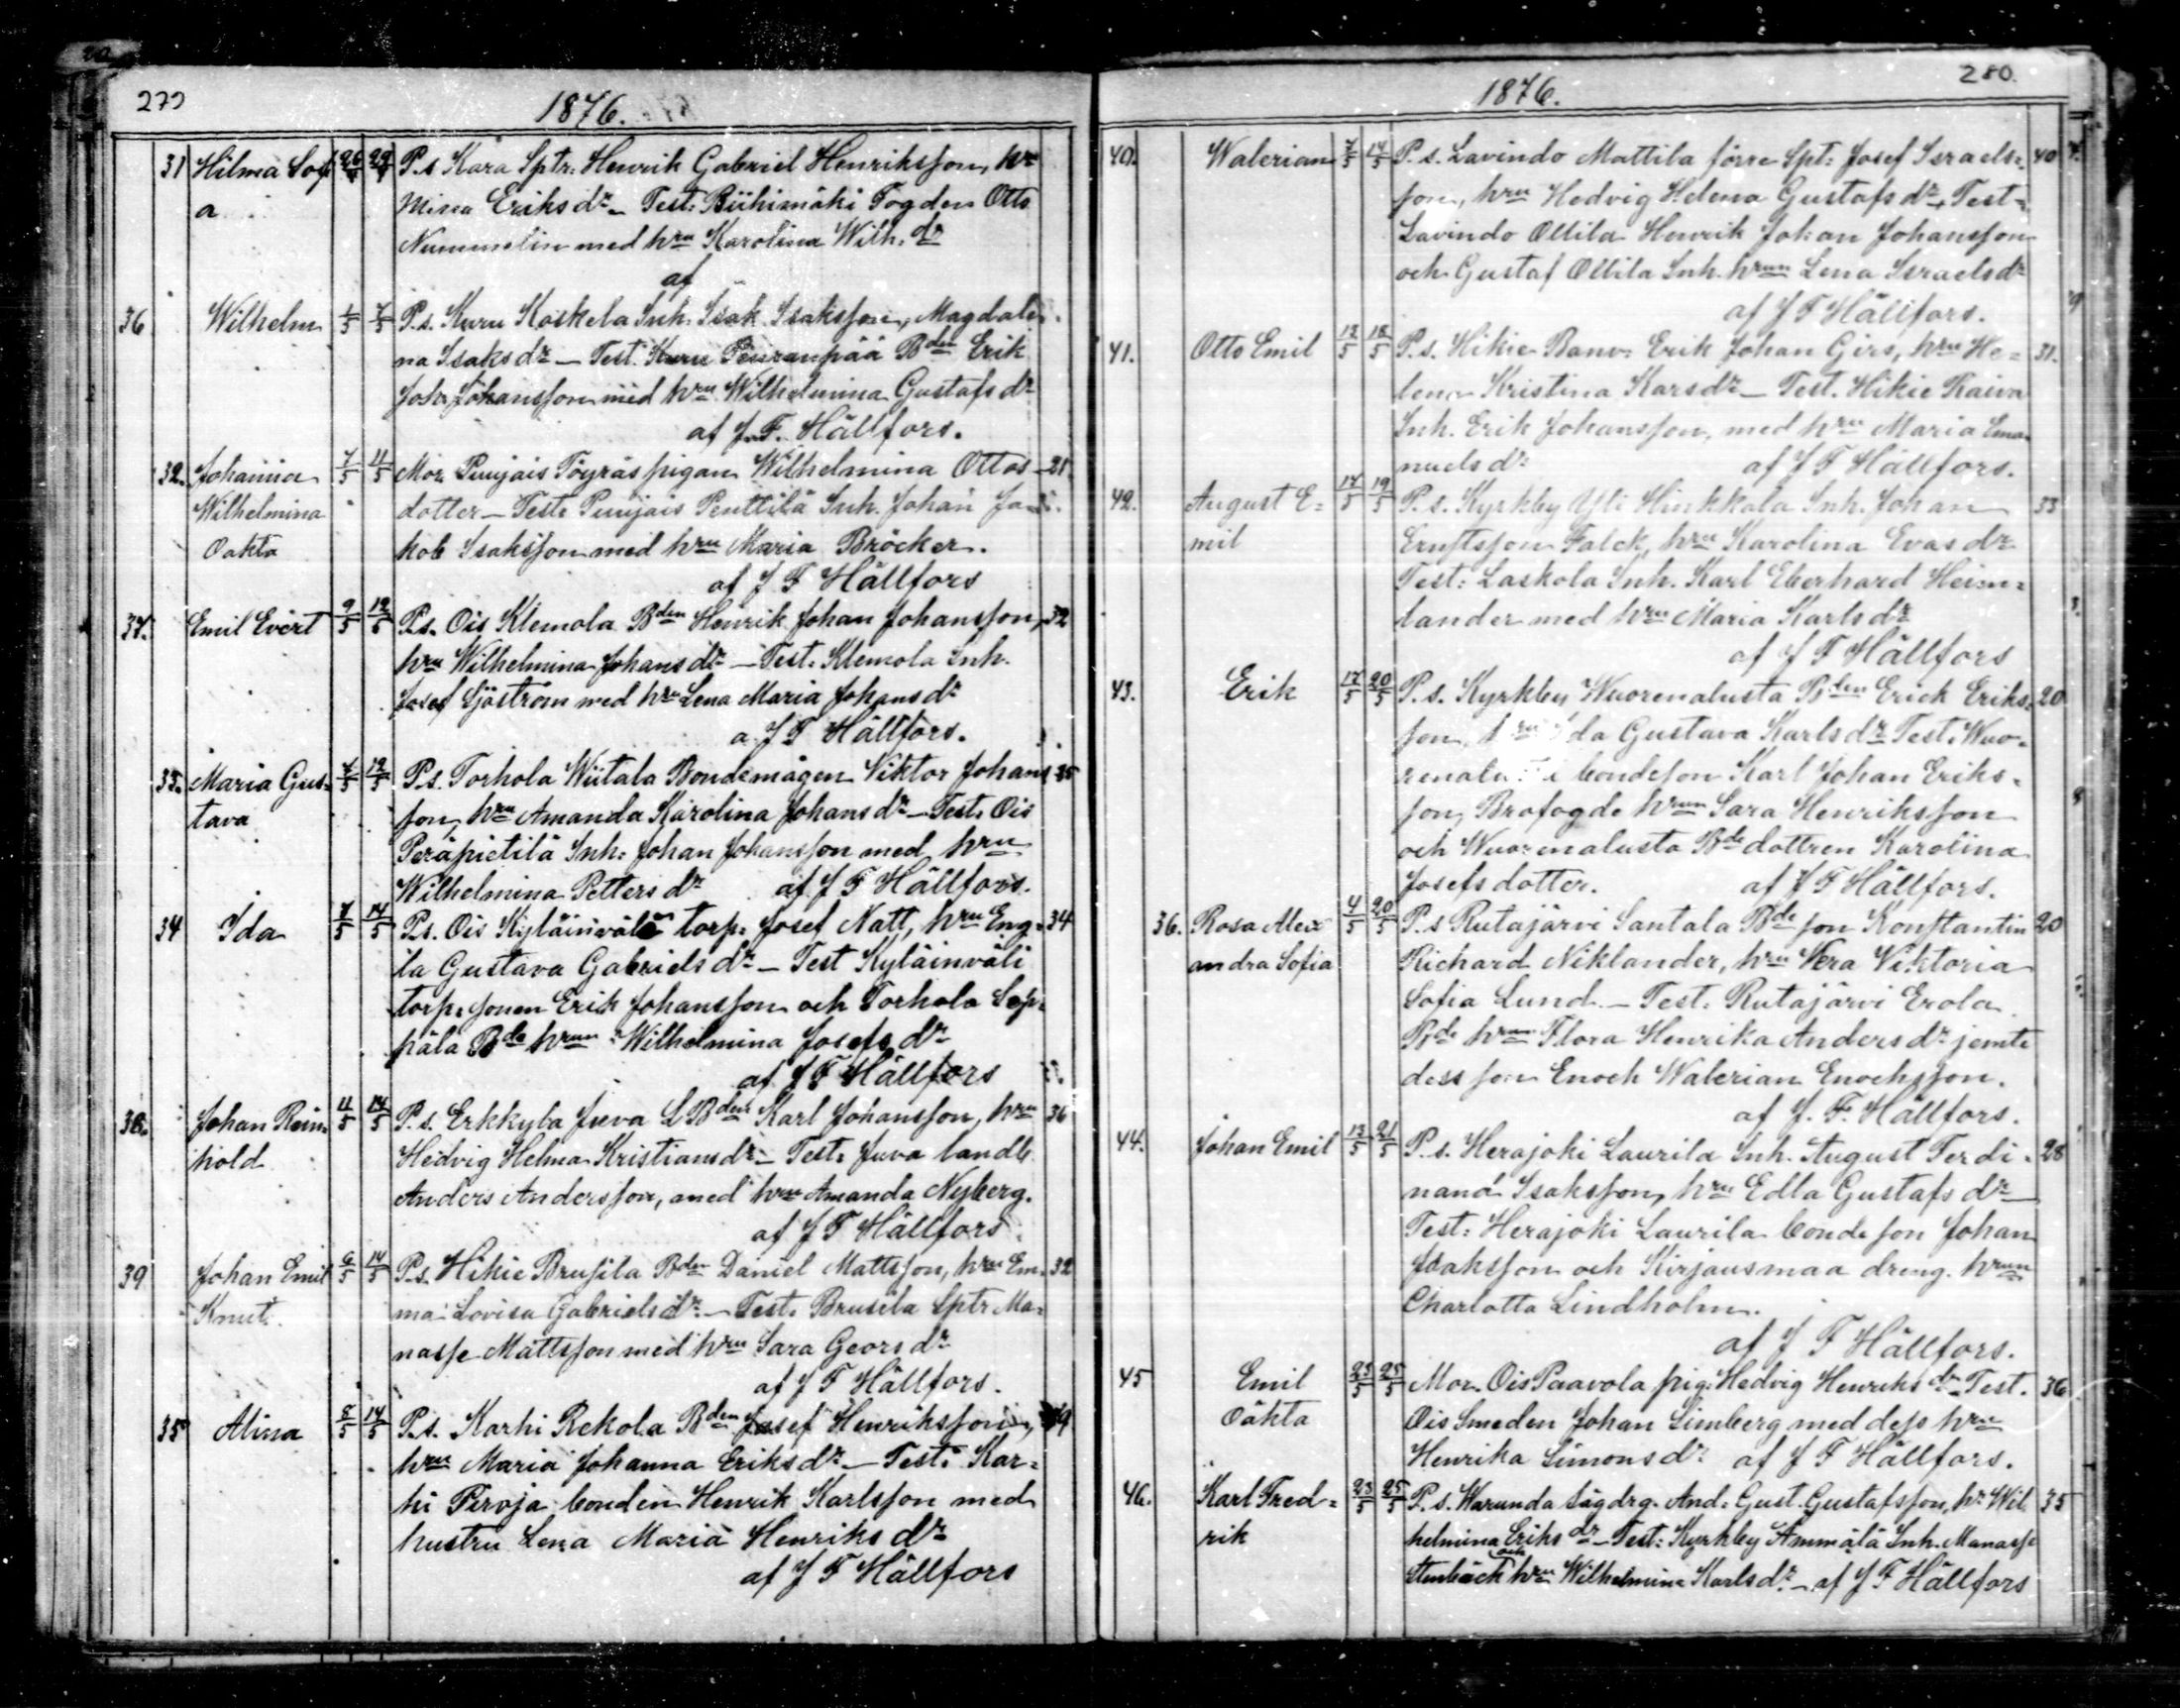 1876.
31 Hilma Sofi 26/4 29/4 P.s. Kara Sptr. Henrik Gabriel Henriksson, hr
a Mina Eriks dr – Test: Riihimäki Fogden Otto
Nummelin med hru Karolina Wilh. dr
af
36 Wilhelm 1/5 7/5 P.s. Kuru Koskela Inh. Isak Isaksson, Magdale
na Isaks dr – Test. Kuru Peuranpää Bden Erik
Joh. Johansson med hru Wilhelmina Gustafs dr
af J. F. Hällfors.
32. Johanna 7/5 11/5 Mor Puujais Töyräs pigan Wilhelmina Ottos 21
Wilhelmina dotter – Test: Puujais Penttilä Inh. Johan Ja
Oäkta kob Isaksson med hru Maria Bröcker.
af J F Hällfors
37. Emil Evert 9/5 12/5 P.s. Ois Klemola Bden Henrik Johan Johansson, 32
hru Wilhelmina Johans dr – Test: Klemola Inh.
Josef Sjöström med hru Lena Maria Johans dr
a. J F Hällfors.
33. Maria Gus= 12/5 P.s. Torhola Wiitala Bondemågen Viktor Johans 25
tava son, hru Amanda Karolina Johans dr – Test: Ois
Peräpietilä Inh: Johan Johansson med hru
Wilhelmina Petters dr af J F Hällfors.
34 Ida 14/5 P.s. Ois Kyläinväli torp: Josef Natt, hru Eng= 34
la Gustava Gabriels dr – Test Kyläinväli
torp: sonen Erik Johansson och Torhola Sep=
pälä Bde hrun Wilhelmina Josefs dr
af J F Hällfors
38. Johan Rein= 11/5 14/5 P.s. Erkkylä Juva L.Bden Karl Johansson, hru 36
hold Hedvig Helma Kristians dr – Test: Juva landb
Anders Andersson, med hru Amanda Nyberg.
af J F Hällfors.
39 Johan Emil 6/5 14/5 P.s. Hikie Brusila Bden Daniel Mattsson, hru Em= 32
Knut. ma Lovisa Gabriels dr – Test: Brusila Sptr Ma=
nasse Mattsson med hru Sara Geors dr
af J F Hällfors.
35 Alina 8/5 14/5 P.s. Karhi Rekola Bden Josef Henriksson,
hru Maria Johanna Eriks dr – Test: Kar=
hi Pirvja bonden Henrik Karlsson med
hustru Lena Maria Henriks dr
af J F Hällfors
280.
1876.
40. Walerian 7/5 14/5 P.s. Lavindo Mattila förre Spt: Josef Israels= 40
son, hru Hedvig Helena Gustafs dr, Test=
Lavindo Ollila Henrik Johan Johansson
och Gustaf Ollila Inh. hrun Lena Israels dr
af J F Hällfors.
41. Otto Emil 12/5 18/5 P.s. Hikie Banv: Erik Johan Girs, hru He= 31.
lena Kristina Karsdr – Test. Hikie Raiva
Inh. Erik Johansson, med hru Maria Ema=
nuels dr af J F Hällfors.
42. August E= 17/5 19/5 P.s. Kyrkby Yli Hinkkala Inh. Johan 33
mil Ernstsson Falck, hru Karolina Evas dr
Test: Laskola Inh. Karl Eberhard Heim=
lander med hru Maria Karls dr
af J F Hällfors
43. Erik 17/5 20/5 P.s. Kyrkby Wuorenalusta Bden Erick Eriks= 20
son, da Gustava Karls dr Test: Wuo=
renalu bondeson Karl Johan Eriks=
son, Brofogde hrun Sara Henriksson
och Wuorenalusta Bde dottren Karolina
Josefs dotter. af J F Hällfors.
36. Rosa Alex 4/5 20/5 P.s Rutajärvi Santala Bde son Konstantin 20
andra Sofia Richard Niklander, hru Wera Viktoria
Sofia Lund. – Test: Rutajärvi Erola
Bde hrun Flora Henrika Anders dr jemte
dess son Enoch Walerian Enochsson.
af J. F. Hällfors.
44. Johan Emil 13/5 21/5 P.s. Herajoki Laurila Inh. August Ferdi= 28
nand Isaksson, hru Edla Gustafs dr –
Test: Herajoki Laurila bondeson Johan
Isaksson och Kirjausmaa dreng. hrun
Charlotta Lindholm.
af J F Hällfors.
45 Emil 23/5 25/5 Mor. Ois Paavola pig: Hedvig Henriks dr Test. 36
Oäkta Ois Smeden Johan Limberg med dess hru
Henrika Simons dr af J F Hällfors.
46. Karl Fred= 23/5 25/5 P.s. Warunda sågdrg. And: Gust. Gustafsson, hr Wil 35
rik helmina Eriks dr – Test: Kyrkby Ämmälä Inh. Manasse
Stenbäck och hru Wilhelmina Karls dr – af J F Hällfors